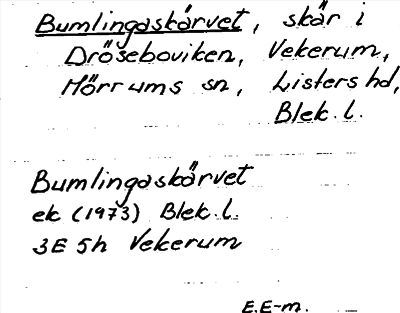 Bumlingaskärvet, skär i
Dröseboviken, Vekerum,
Mörrums sn, Listers hd,
Blek. l.
Bumlingaskärvet
ek (1973) Blek. l.
3E 5h Vekerum
E.E-m.